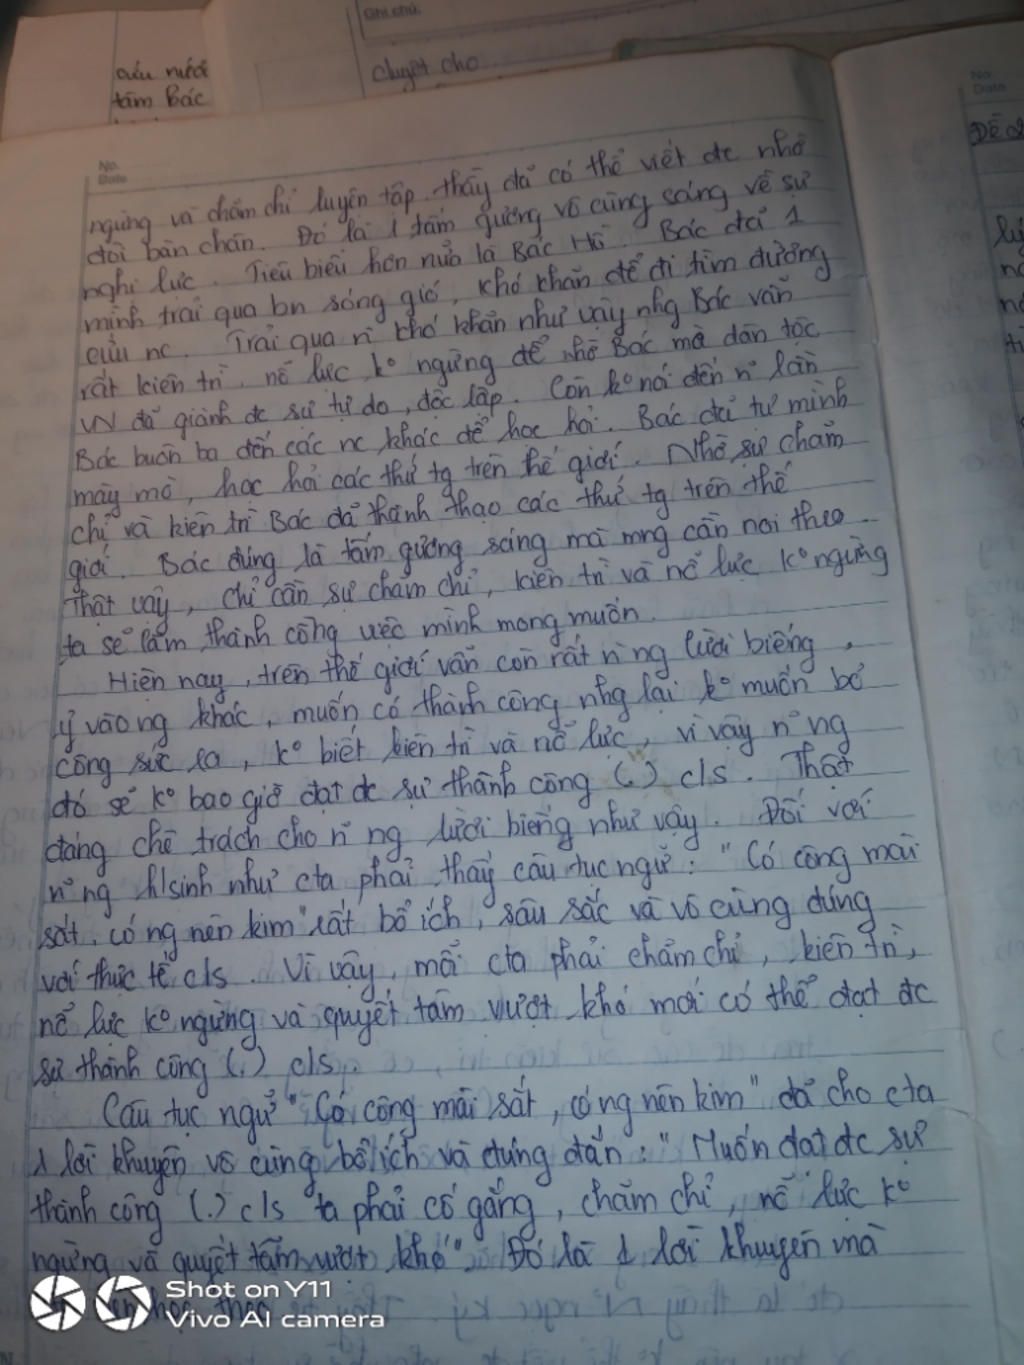 Ghi chú.
cứu nước
tấm Bác
chuyệt cho
No.
Date
No.
Date
ngừng và chăm chỉ luyện tập. thầy đã có thể viết đc nhờ
đôi bàn chân. Đó là 1 tấm gương vô cùng sáng về sự
nghị lực. Tiêu biểu hơn nữa là Bác Hồ. Bác đã 1
mình trải qua bn sóng gió, khó khăn để đi tìm đường
cứu nc. Trải qua n~ khó khăn như vậy nhg Bác vẫn
rất kiên trì, nỗ lực k° ngừng để nhờ Bác mà dân tộc
VN đã giành đc sự tự do, độc lập. Còn k° nói đến n~ lần
Bác buôn ba đến các nc khác để học hỏi. Bác đã tự mình
mày mò, học hỏi các thứ tg trên thế giới. Nhờ sự chăm
chỉ và kiên trì Bác đã thành thạo các thứ tg trên thế
giới. Bác đúng là tấm gương sáng mà mng cần noi theo.
Thật vậy, chỉ cần sự chăm chỉ, kiên trì và nỗ lực k° ngừng
ta sẽ làm thành công việc mình mong muốn.
Hiện nay, trên thế giới vẫn còn rất n` ng lười biếng,
ỷ vào ng khác, muốn có thành công nhg lại k° muốn bỏ
công sức ra, k° biết kiên trì và nỗ lực, vì vậy n~ ng
đó sẽ k° bao giờ đạt đc sự thành công (.) c/s. Thật
đáng chê trách cho n~ ng lười biếng như vậy. Đối với
n~ ng h/sinh như cta phải thấy câu tục ngữ: "Có công mài
sắt, có ng nên kim" rất bổ ích, sâu sắc và vô cùng đúng
với thực tế c/s. Vì vậy, mỗi cta phải chăm chỉ, kiên trì,
nỗ lực k° ngừng và quyết tâm vượt khó mới có thể đạt đc
sự thành công (.) c/s.
Câu tục ngữ "Có công mài sắt, có ng nên kim" đã cho cta
1 lời khuyên vô cùng bổ ích và đúng đắn: "Muốn đạt đc sự
thành công (.) c/s ta phải cố gắng, chăm chỉ, nỗ lực k°
ngừng và quyết tâm vượt khó". Đó là 1 lời khuyên mà
nên học theo
Shot on Y11
Vivo AI camera